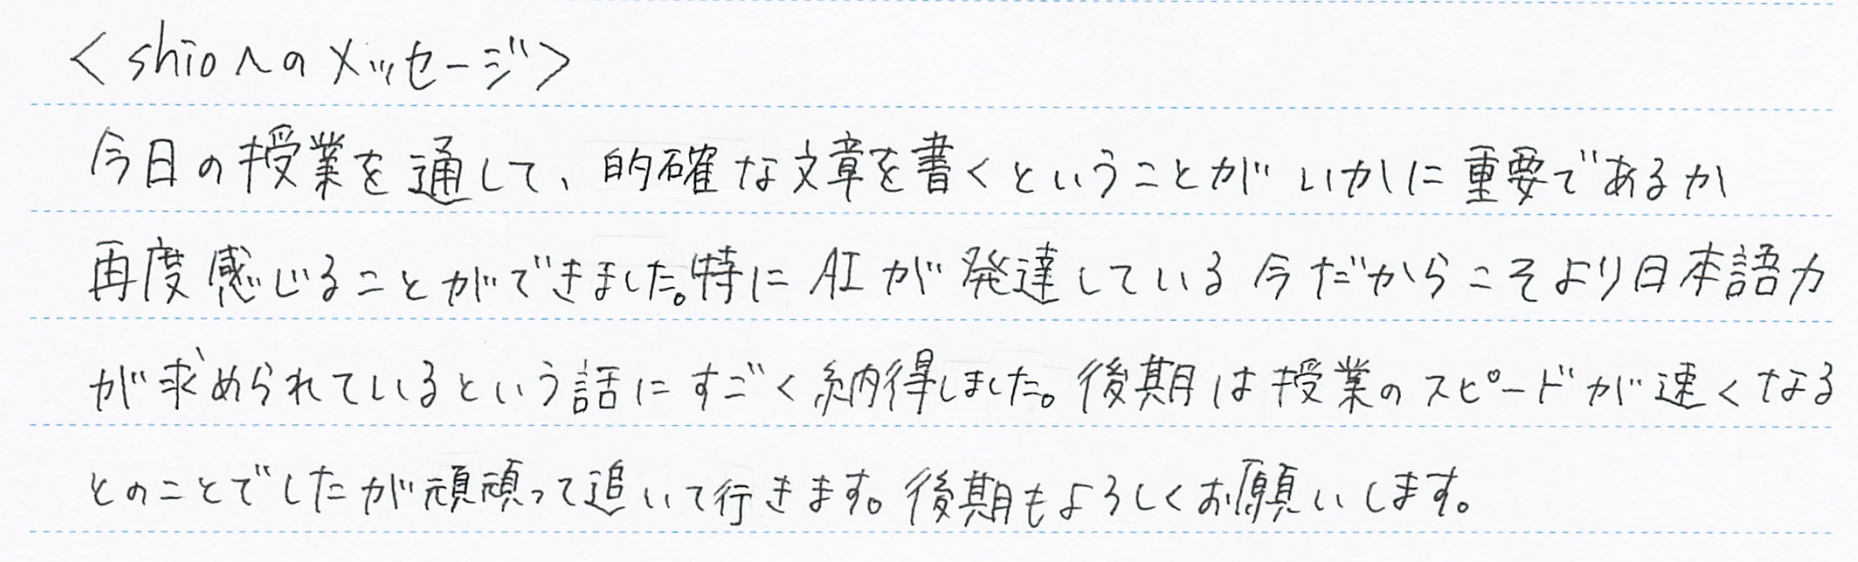 <shioへのメッセージ>
今日の授業を通して、的確な文章を書くということがいかに重要であるか
再度感じることができました。特にAIが発達している今だからこそより日本語力
が求められているという話にすごく納得しました。後期は授業のスピードが速くなる
とのことでしたが頑頑って追いて行きます。後期もよろしくお願いします。